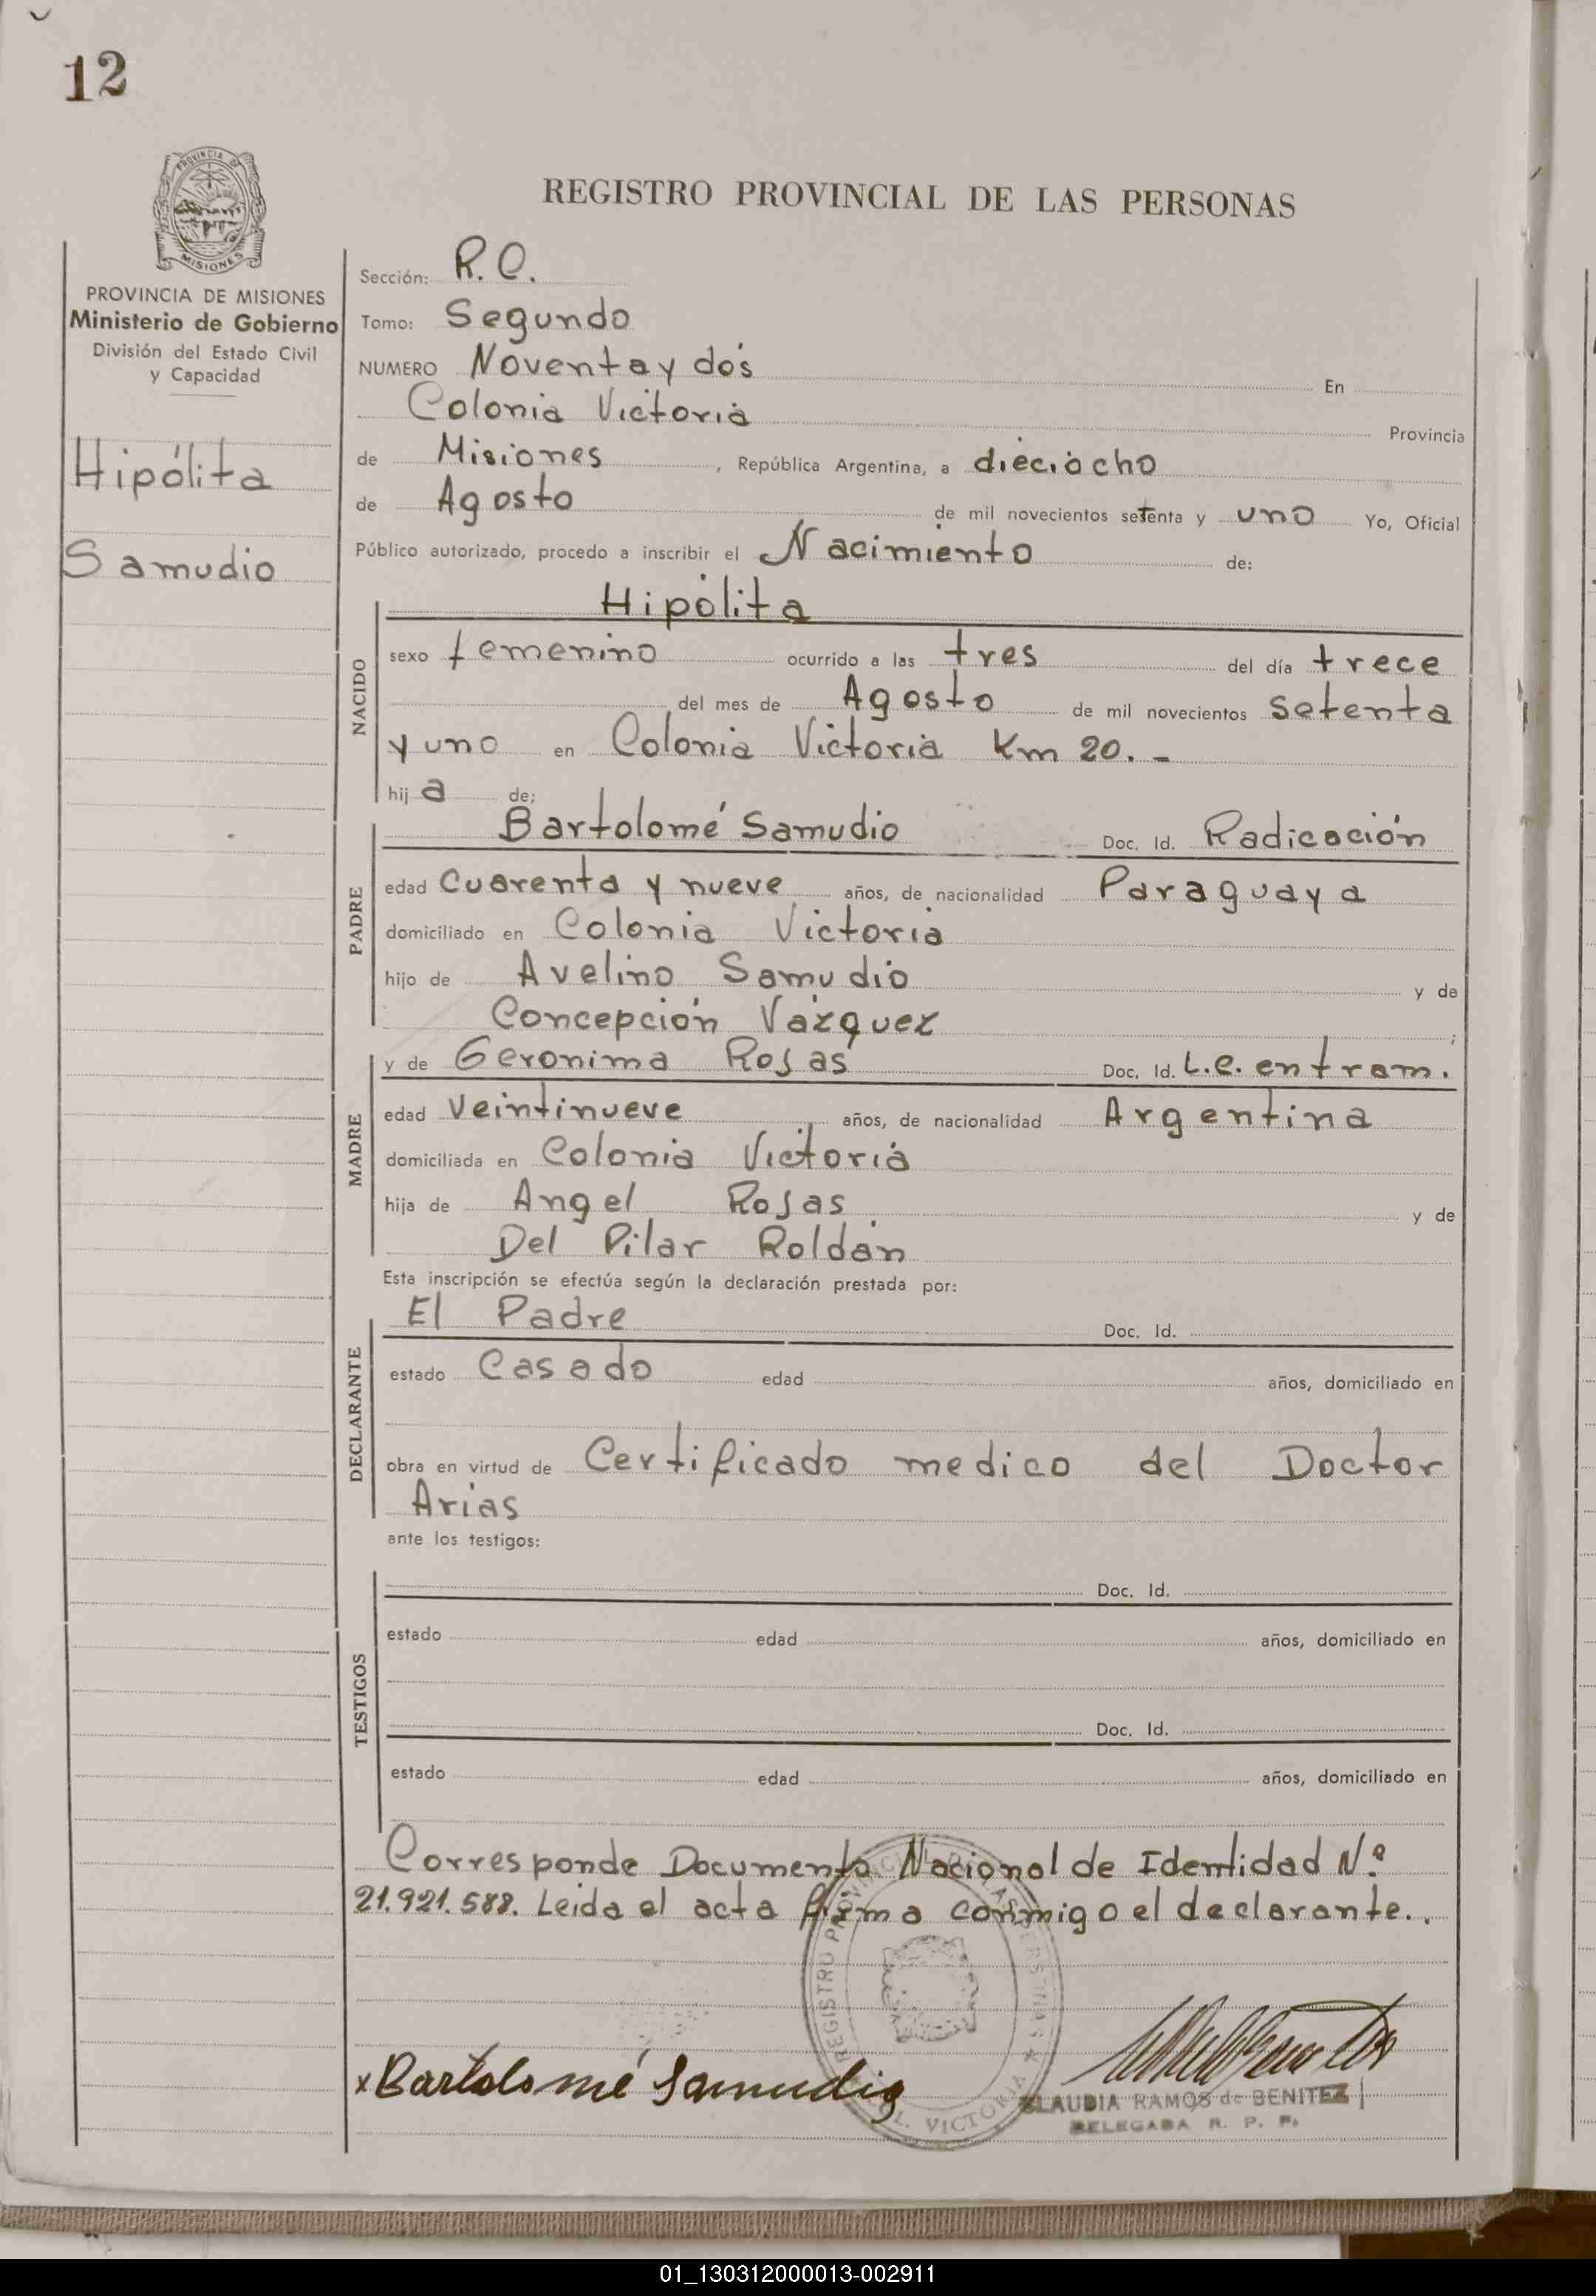 12
PROVINCIA DE
MISIONES
REGISTRO PROVINCIAL DE LAS PERSONAS
PROVINCIA DE MISIONES
Ministerio de Gobierno
División del Estado Civil
y Capacidad
Hipólita
Samudio
Sección: R.C.
Tomo: Segundo
NUMERO Noventa y dós En
Colonia Victoria Provincia
de Misiones, República Argentina, a dieciocho
de Agosto de mil novecientos setenta y uno Yo, Oficial
Público autorizado, procedo a inscribir el Nacimiento de:
Hipólita
NACIDO
sexo femenino ocurrido a las tres del día trece
del mes de Agosto de mil novecientos setenta
y uno en Colonia Victoria Km 20. -
hij a de:
PADRE
Bartolomé Samudio Doc. Id. Radicación
edad Cuarenta y nueve años, de nacionalidad Paraguaya
domiciliado en Colonia Victoria
hijo de Avelino Samudio y de
Concepción Vázquez ;
MADRE
y de Geronima Rojas Doc. Id. L.C. en tram.
edad Veintinueve años, de nacionalidad Argentina
domiciliada en Colonia Victoria
hija de Angel Rojas y de
Del Pilar Roldán
Esta inscripción se efectúa según la declaración prestada por:
DECLARANTE
El Padre Doc. Id.
estado Casado edad años, domiciliado en
obra en virtud de Certificado medico del Doctor
Arias
ante los testigos:
TESTIGOS
Doc. Id.
estado edad años, domiciliado en
Doc. Id.
estado edad años, domiciliado en
Corresponde Documento Nacional de Identidad N.º
21.921.588. Leida el acta firma conmigo el declarante..
REGISTRO PROVINCIAL DE LAS PERSONAS ★ COL. VICTORIA ★
x Bartolomé Samudio
CLAUDIA RAMOS de BENITEZ
DELEGADA R. P. P.
01_130312000013-002911